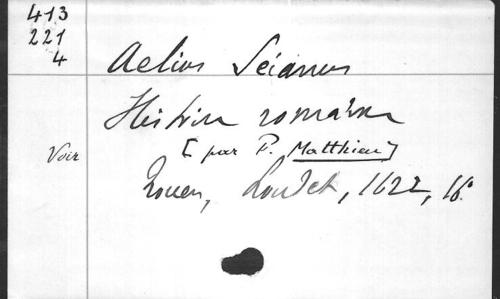 413
221
4
Aelius Seianus
Histoire romaine
Voir [par P. Matthieu]
Rouen, 1622, 16°